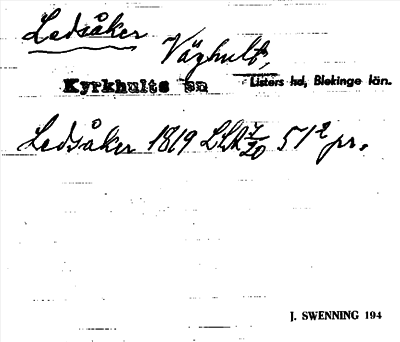 Ledsåker
Våghult,
Kyrkhults sn Listers hd, Blekinge län.
Ledsåker 1819 LSA 7/20 51² pr.
J. SWENNING 194